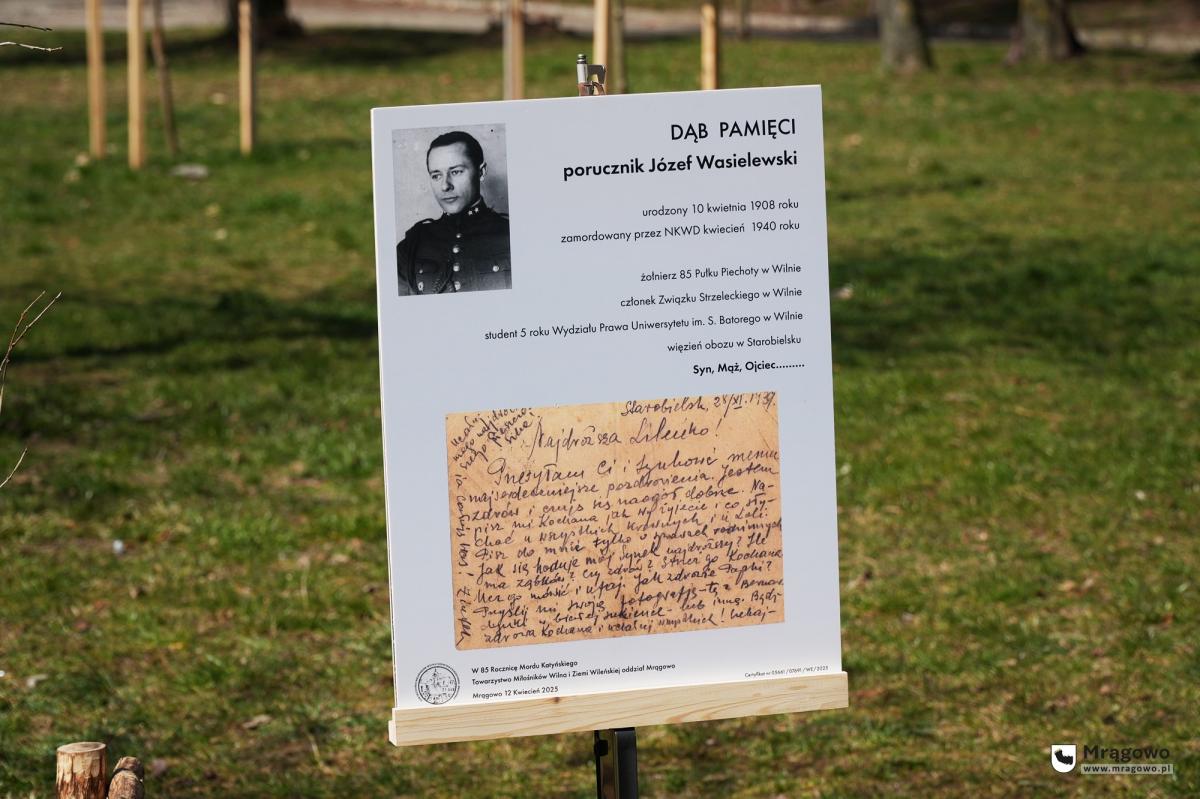 DĄB PAMIĘCI
porucznik Józef Wasielewski
urodzony 10 kwietnia 1908 roku
zamordowany przez NKWD kwiecień 1940 roku
żołnierz 85 Pułku Piechoty w Wilnie
członek Związku Strzeleckiego w Wilnie
student 5 roku Wydziału Prawa Uniwersytetu im. S. Batorego w Wilnie
więzień obozu w Starobielsku
Syn, Mąż, Ojciec.........
Starobielsk, 28/XI.1939.
Najdroższa Lileńko!
Przesyłam Ci i
najserdeczniejsze pozdrowienia. Jestem
zdrów i czuję się naogół dobrze. Na-
pisz mi Kochana jak wy żyjecie i co sły-
chać u wszystkich krewnych i u
Pisz do mnie tylko o sprawach rodzinnych
Jak się hoduje mój Synek najdroższy? Ile
ma ząbków? Czy zdrów? Kochana
Jak zdrowie Papki?
Przyślij mi swoją fotografję-tę z
w białej sukience- lub inną. Bądź
zdrowa Kochana i ucałuj wszystkich!
W 85 Rocznicę Mordu Katyńskiego
Towarzystwo Miłośników Wilna i Ziemi Wileńskiej oddział Mrągowo
Mrągowo 12 Kwiecień 2025
Certyfikat nr 05661/07691/WE/2025
Mrągowo
www.mragowo.pl